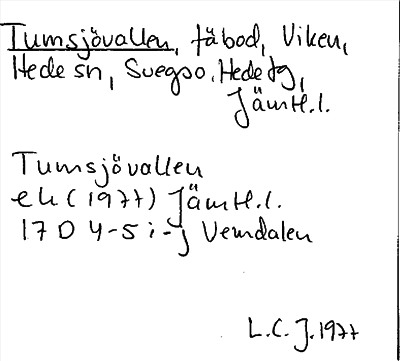 Tumsjövallen, fäbod, Viken,
Hede sn, Svegs o. Hede tg,
Jämtl.l.
Tumsjövallen
ek (1977) Jämtl.l.
17 D 4-5 i-j Vemdalen
L.C.J. 1977